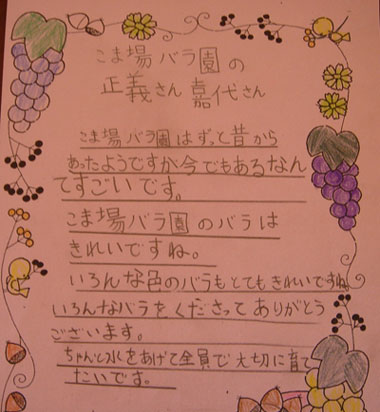 こま場バラ園の
正義さん 嘉代さん
こま場バラ園はずっと昔から
あったようですが今でもあるなん
てすごいです。
こま場バラ園のバラは
きれいですね。
いろんな色のバラもとてもきれいですね
いろんなバラをくださってありがとう
ございます。
ちゃんと水をあげて全員で大切に育て
たいです。